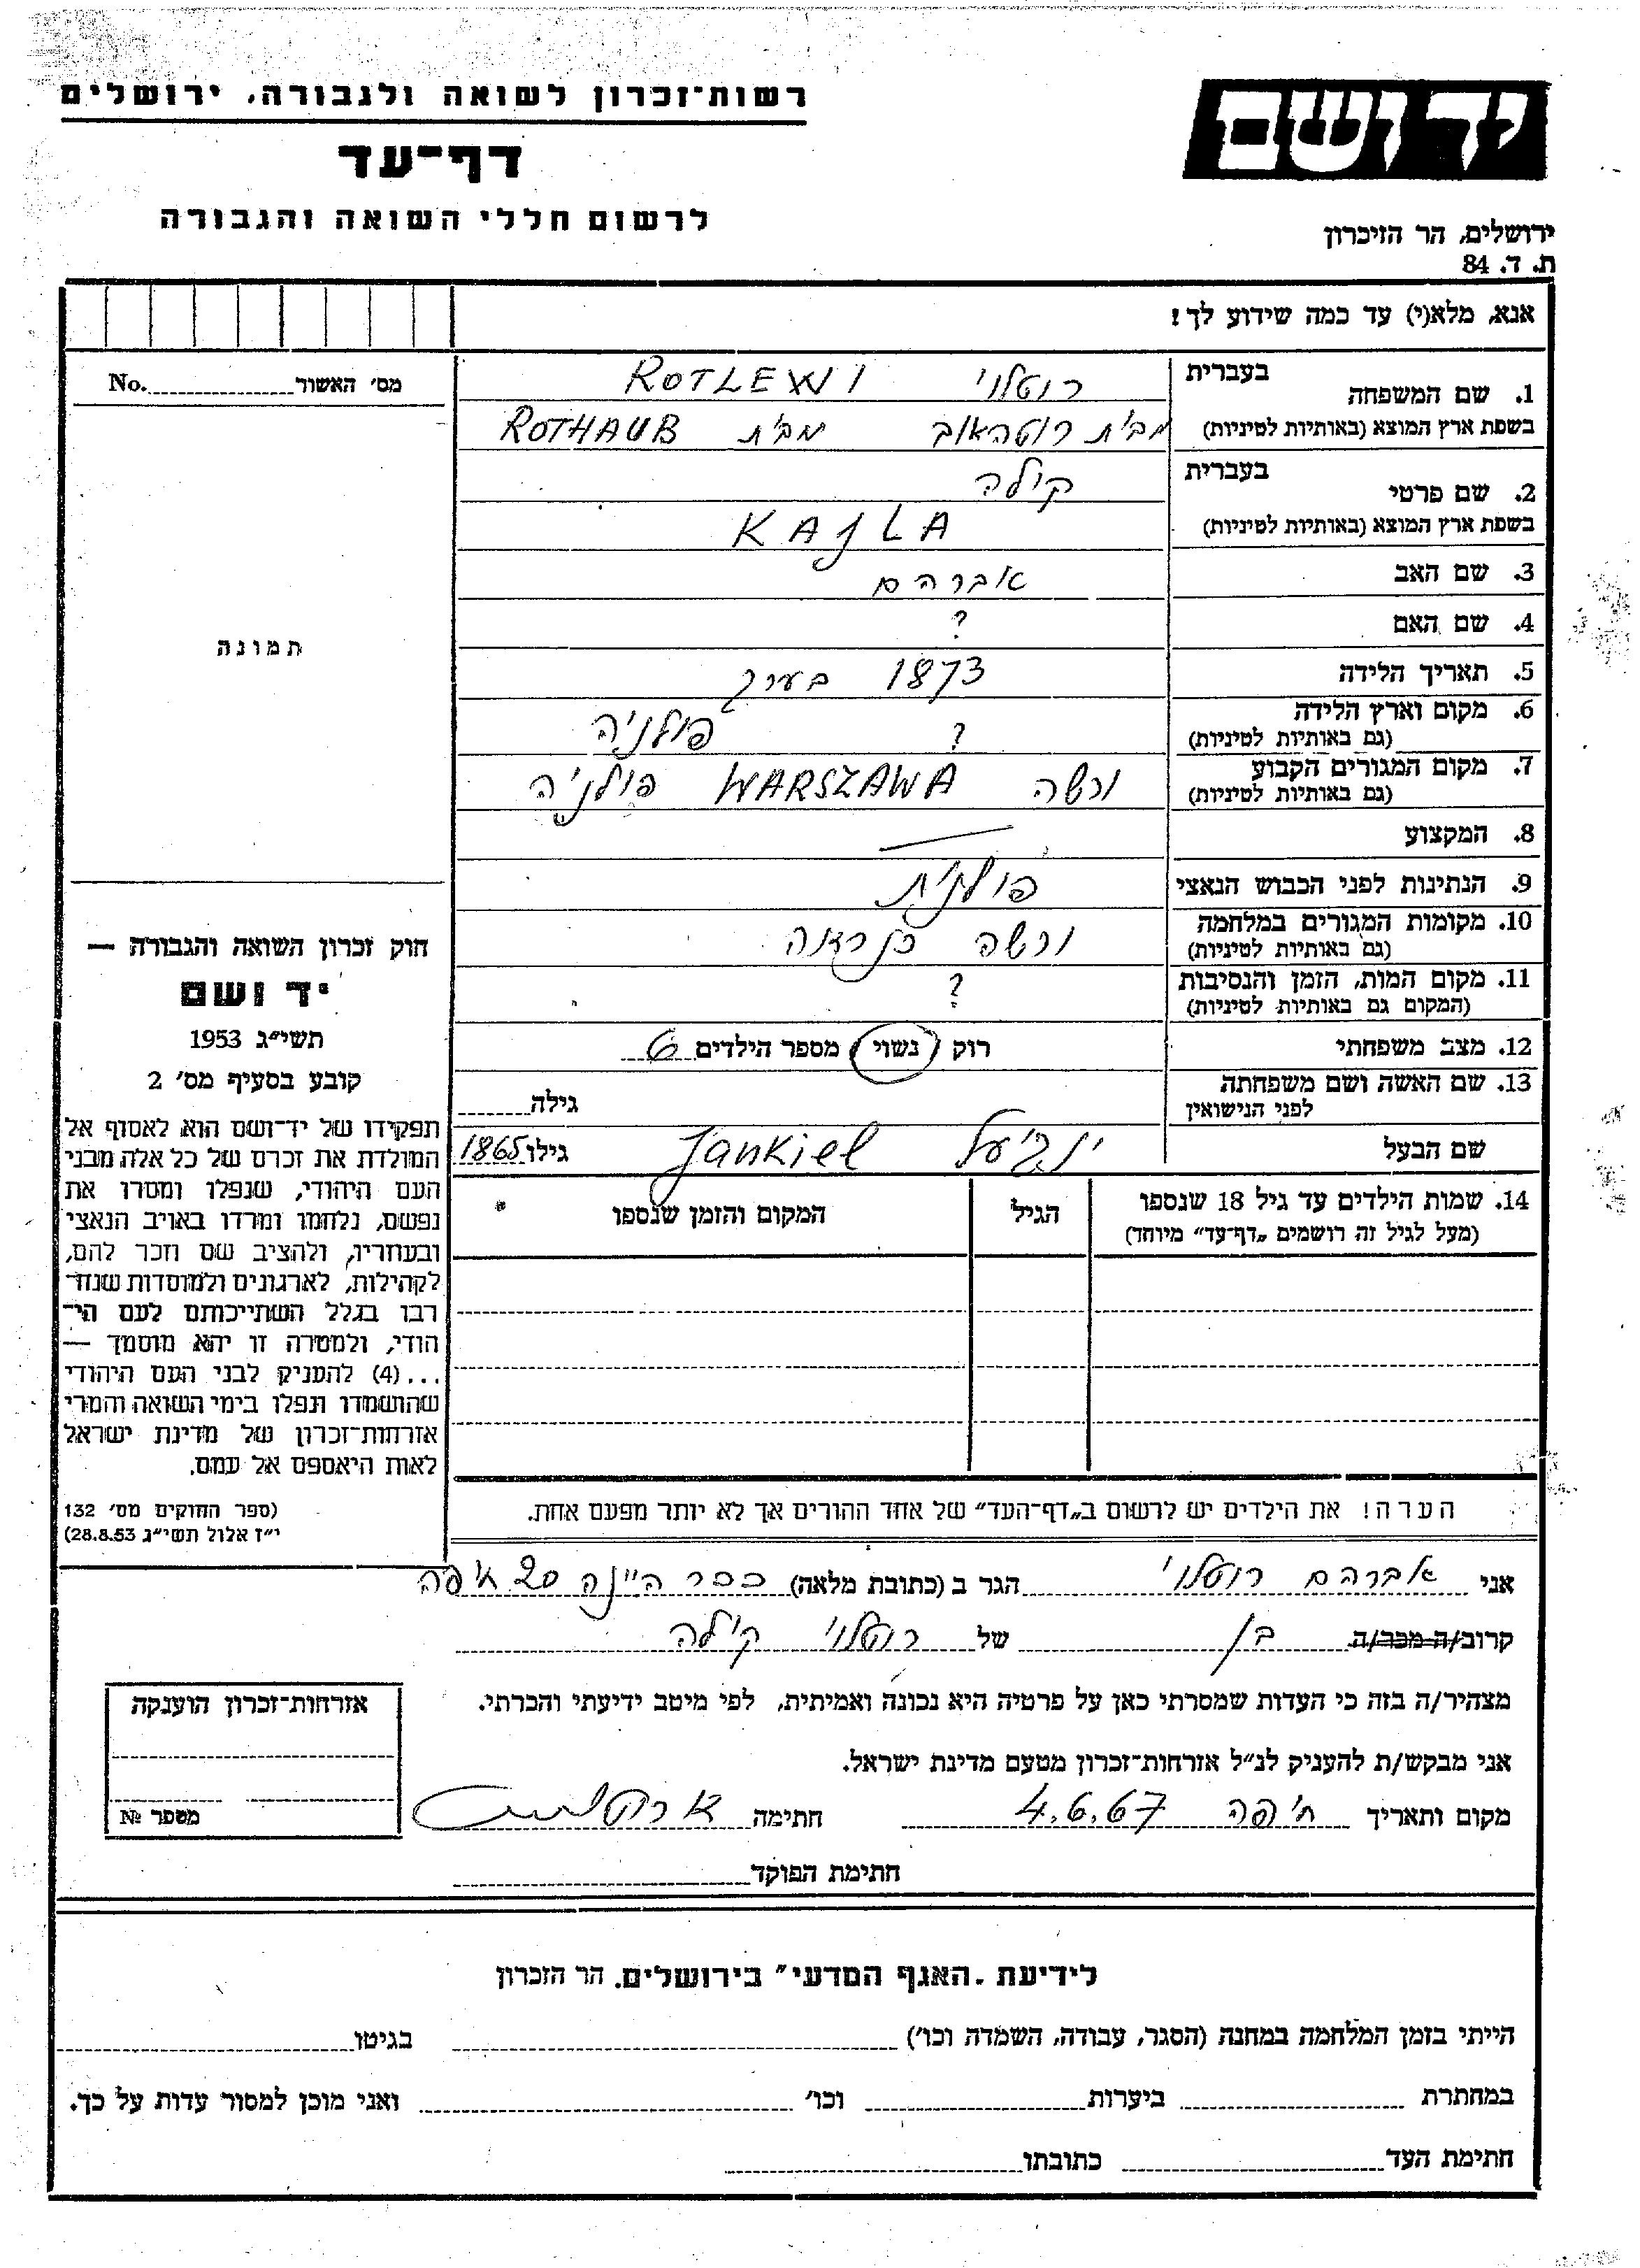 יד ושם
רשות־זכרון לשואה ולגבורה, ירושלים
דף־עד
לרשום חללי השואה והגבורה
ירושלים, הר הזיכרון
ת. ד. 84
אנא, מלא(י) עד כמה שידוע לך!
1. שם המשפחה בעברית רוטלוי ROTLEWI
בשפת ארץ המוצא (באותיות לטיניות) מבית רוטהאוב מבית ROTHAUB
2. שם פרטי בעברית קילה
בשפת ארץ המוצא (באותיות לטיניות) KAJLA
3. שם האב אברהם
4. שם האם ?
5. תאריך הלידה 1873 בערך
6. מקום וארץ הלידה ? פולניה
(גם באותיות לטיניות)
7. מקום המגורים הקבוע ורשה WARSZAWA פולניה
(גם באותיות לטיניות)
8. המקצוע
9. הנתינות לפני הכבוש הנאצי פולנית
10. מקומות המגורים במלחמה ורשה
(גם באותיות לטיניות)
11. מקום המות, הזמן והנסיבות ?
(המקום גם באותיות לטיניות)
12. מצב משפחתי רוק / נשוי / מספר הילדים 6
13. שם האשה ושם משפחתה
לפני הנישואין גילה
שם הבעל Jankiel גילו 1865
14. שמות הילדים עד גיל 18 שנספו הגיל המקום והזמן שנספו
(מעל לגיל זה רושמים „דף־עד” מיוחד)
מס׳ האשור No.
תמונה
חוק זכרון השואה והגבורה —
יד ושם
תשי״ג 1953
קובע בסעיף מס׳ 2
תפקידו של יד־ושם הוא לאסוף אל
המולדת את זכרם של כל אלה מבני
העם היהודי, שנפלו ומסרו את
נפשם, נלחמו ומרדו באויב הנאצי
ובעוזריו, ולהציב שם וזכר להם,
לקהילות, לארגונים ולמוסדות שנח־
רבו בגלל השתייכותם לעם הי־
הודי, ולמטרה זו יהא מוסמך —
...(4) להעניק לבני העם היהודי
שהושמדו ונפלו בימי השואה והמרי
אזרחות־זכרון של מדינת ישראל
לאות היאספם אל עמם.
(ספר החוקים מס׳ 132
י״ז אלול תשי״ג 28.8.53)
הערה! את הילדים יש לרשום ב„דף־העד” של אחד ההורים אך לא יותר מפעם אחת.
אני אברהם רוטלוי הגר ב (כתובת מלאה) ככר היינה 20 חיפה
קרוב/ה מכר/ה בן של רוטלוי קילה
מצהיר/ה בזה כי העדות שמסרתי כאן על פרטיה היא נכונה ואמיתית, לפי מיטב ידיעתי והכרתי.
אני מבקש/ת להעניק לנ״ל אזרחות־זכרון מטעם מדינת ישראל.
מקום ותאריך חיפה 4.6.67 חתימה
חתימת הפוקד
אזרחות־זכרון הוענקה
מספר №
לידיעת „האגף המדעי” בירושלים, הר הזכרון
הייתי בזמן המלחמה במחנה (הסגר, עבודה, השמדה וכו׳) בגיטו
במחתרת ביערות וכו׳ ואני מוכן למסור עדות על כך.
חתימת העד כתובתו